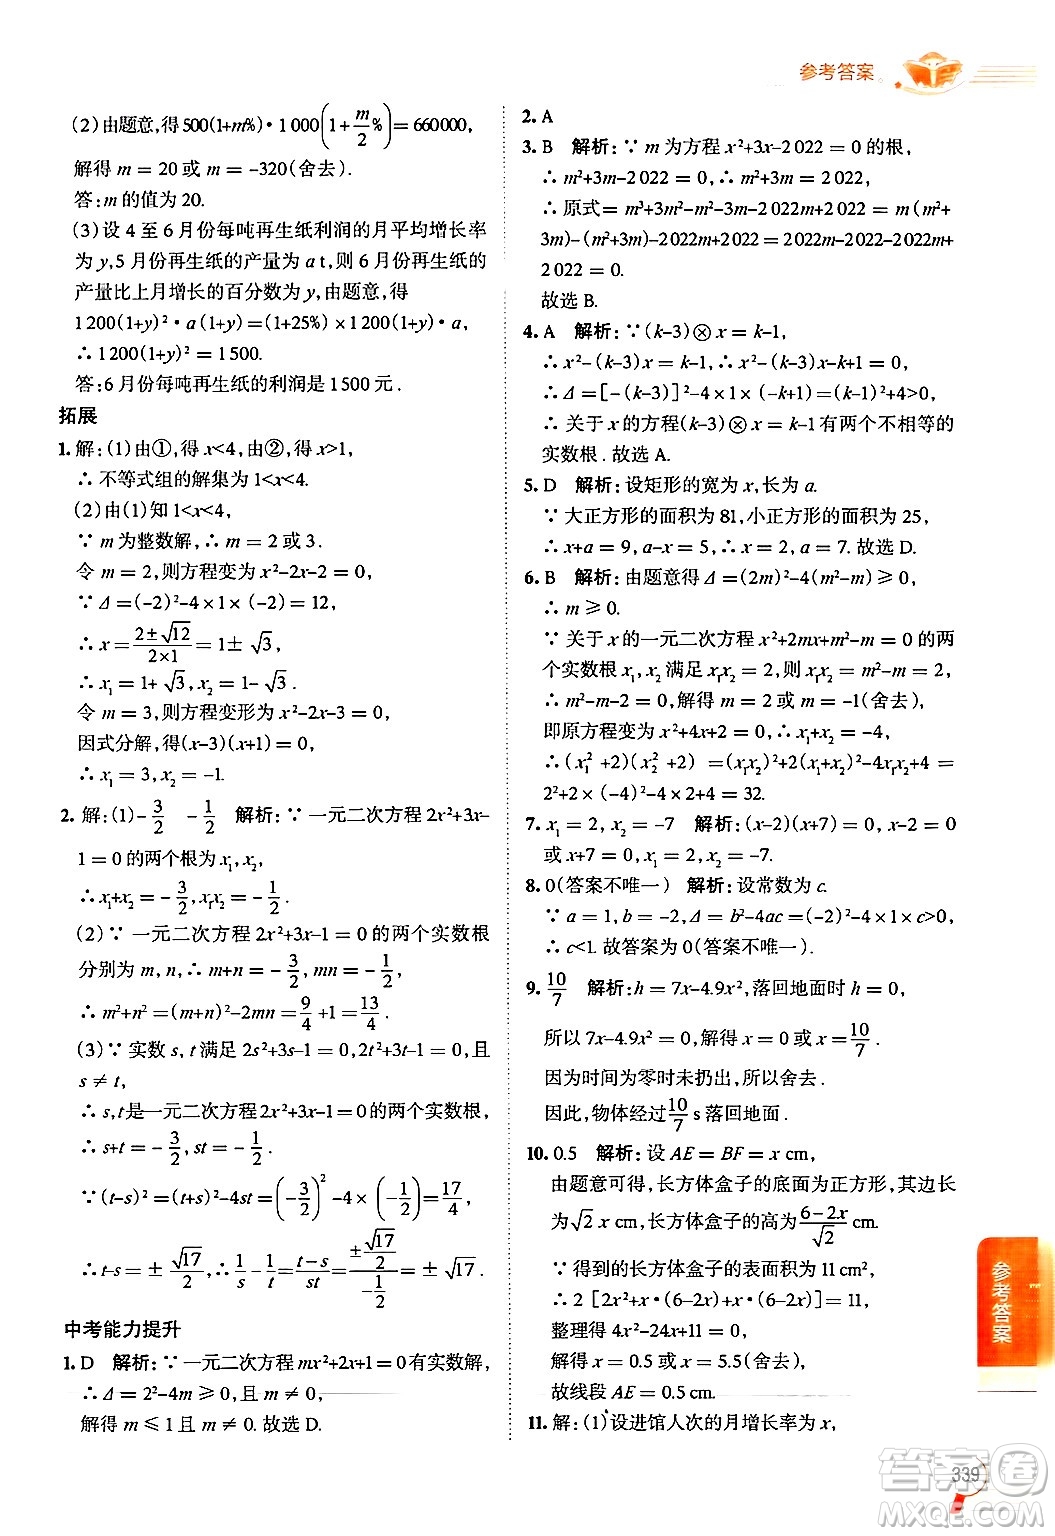 参考答案
(2)由题意,得500(1+m%)·1 000(1+m/2%)=660000,
解得 m = 20 或 m = -320(舍去).
答:m 的值为 20.
(3)设 4 至 6 月份每吨再生纸利润的月平均增长率
为 y,5 月份再生纸的产量为 a t,则 6 月份再生纸的
产量比上月增长的百分数为 y,由题意,得
1 200(1+y)²·a(1+y)=(1+25%)×1 200(1+y)·a,
∴1 200(1+y)²=1 500.
答:6 月份每吨再生纸的利润是 1 500 元.
拓展
1. 解:(1)由①,得 x<4,由②,得 x>1,
∴不等式组的解集为 1<x<4.
(2)由(1)知 1<x<4,
∵ m 为整数解,∴ m = 2 或 3.
令 m = 2,则方程变为 x²-2x-2 = 0,
∵Δ=(-2)²-4×1×(-2)=12,
∴x=(2±√12)/(2×1)=1±√3,
∴x₁=1+√3,x₂=1-√3.
令 m = 3,则方程变形为 x²-2x-3 = 0,
因式分解,得(x-3)(x+1)=0,
∴x₁=3,x₂=-1.
2. 解:(1)-3/2 -1/2 解析:∵一元二次方程 2x²+3x-
1=0 的两个根为 x₁,x₂,
∴x₁+x₂=-3/2,x₁x₂=-1/2.
(2)∵一元二次方程 2x²+3x-1=0 的两个实数根
分别为 m,n,∴m+n=-3/2,mn=-1/2,
∴m²+n²=(m+n)²-2mn=9/4+1=13/4.
(3)∵实数 s,t 满足 2s²+3s-1=0,2t²+3t-1=0,且
s≠t,
∴s,t是一元二次方程 2x²+3x-1=0 的两个实数根,
∴s+t=-3/2,st=-1/2.
∵(t-s)²=(t+s)²-4st=(-3/2)²-4×(-1/2)=17/4,
∴t-s=±√17/2,∴1/s-1/t=(t-s)/st=(±√17/2)/(-1/2)=±√17.
中考能力提升
1. D 解析:∵一元二次方程 mx²+2x+1=0 有实数解,
∴Δ=2²-4m≥0,且 m≠0,
解得 m≤1 且 m≠0. 故选 D.
2. A
3. B 解析:∵ m 为方程 x²+3x-2 022 = 0 的根,
∴m²+3m-2 022 = 0,∴m²+3m = 2 022,
∴原式=m³+3m²-m²-3m-2 022m+2 022 = m(m²+
3m)-(m²+3m)-2 022m+2 022=2 022m-2 022-2 022m+
2 022 = 0.
故选 B.
4. A 解析:∵(k-3)⊗x=k-1,
∴x²-(k-3)x=k-1,∴x²-(k-3)x-k+1=0,
∴Δ=[-(k-3)]²-4×1×(-k+1)=(k-1)²+4>0,
∴关于 x 的方程(k-3)⊗x=k-1有两个不相等的
实数根.故选 A.
5. D 解析:设矩形的宽为 x,长为 a.
∵大正方形的面积为 81,小正方形的面积为 25,
∴x+a = 9,a-x = 5,∴x = 2,a = 7. 故选 D.
6. B 解析:由题意得 Δ=(2m)²-4(m²-m)≥0,
∴m≥0.
∵关于 x 的一元二次方程 x²+2mx+m²-m = 0 的两
个实数根 x₁,x₂ 满足 x₁x₂ = 2,则 x₁x₂ = m²-m = 2,
∴m²-m-2 = 0,解得 m = 2 或 m = -1(舍去),
即原方程变为 x²+4x+2 = 0,∴x₁+x₂=-4,
∴(x₁²+2)(x₂²+2)=(x₁x₂)²+2(x₁+x₂)²-4x₁x₂+4=
2²+2×(-4)²-4×2+4 = 32.
7. x₁=2,x₂=-7 解析:(x-2)(x+7)=0,x-2 = 0
或 x+7 = 0,x₁ = 2,x₂ = -7.
8. 0(答案不唯一) 解析:设常数为 c.
∵a = 1,b = -2,Δ = b²-4ac=(-2)²-4×1×c>0,
∴c<1. 故答案为 0(答案不唯一).
9. 10/7 解析:h = 7x-4.9x²,落回地面时 h = 0,
所以 7x-4.9x² = 0,解得 x₁ = 0,x₂ = 10/7.
因为时间为零时未扔出,所以舍去.
因此,物体经过10/7 s落回地面.
10. 0.5 解析:设 AE = BF = x cm,
由题意可得,长方体盒子的底面为正方形,其边长
为√2 x cm,长方体盒子的高为(6-2x)/√2 cm.
∵得到的长方体盒子的表面积为 11 cm²,
∴2[2x·x+x·(6-2x)+2x·(6-2x)]=11,
整理得 4x²-24x+11 = 0,
解得 x = 0.5 或 x = 5.5(舍去),
故线段 AE = 0.5 cm.
11. 解:(1)设进馆人次的月增长率为 x,
参考答案
339
答案圈
MXQE.COM